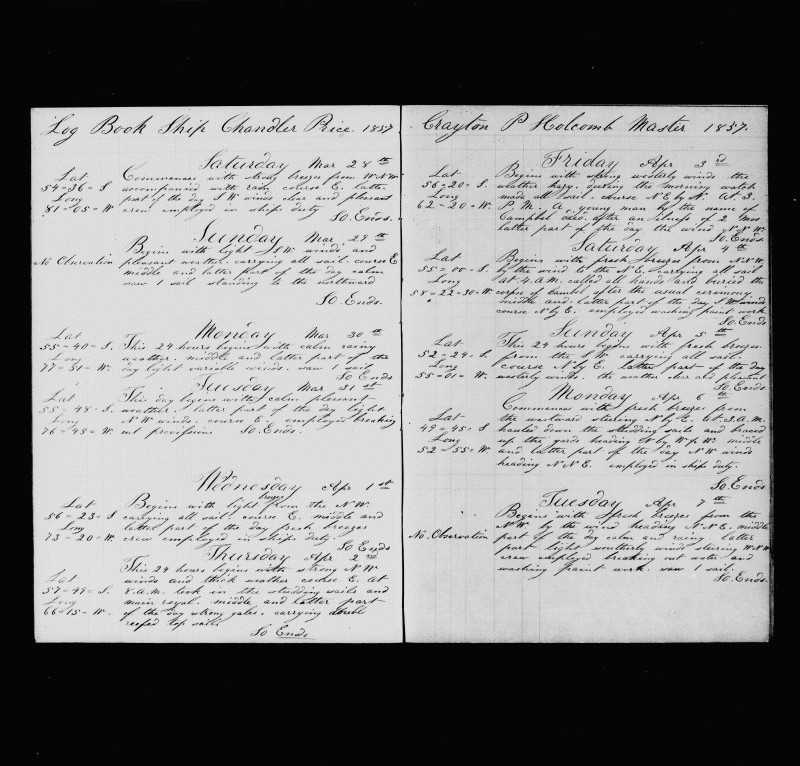 Log Book Ship Chandler Price. 1857
Saturday Mar 28th
Lat
54=36=S
Long
81=05=W
Commences with strong breezes from W.N.W
accompanied with rain course E. latter
part of the day S W winds clear and pleasant
crew employed in ships duty.
So. Ends.
Sunday Mar 29th
No Obsarvation
Begins with light S.W. winds and
pleasant weather. carrying all sail. course E
middle and latter part of the day calm
saw 1 sail standing to the northward
So Ends.
Monday Mar 30th
Lat
55=40=S.
Long
77=51=W.
This 24 hours begins with calm rainy
weather. middle and latter part of the
day light variable winds. saw 1 sail
So Ends
Tuesday Mar 31st
Lat
55=48=S.
Long
76=45=W
This day begins with calm pleasant
weather. latter part of the day light
N.W winds. course E. employed breaking
out provisions So. Ends.
Wednesday Apr 1st
Lat
56=23=S
Long
73=20=W
Begins with light breezes from the N.W.
carrying all sail course E. middle and
latter part of the day fresh breezes
crew employed in ships duty.
So Ends
Thursday Apr 2nd
Lat
57=49=S.
Long
66=15=W.
This 24 hours begins with strong N.W
winds and thick weather course E. At
8.A.M. took in the studding sails and
main royal. middle and latter part
of the day strong gales. carrying double
reefed top sails
So Ends
Crayton P Holcomb Master 1857.
Friday Apr 3rd
Lat
56=20=S.
Long
62=20=W.
Begins with strong westerly winds the
weather hazy. during the morning watch
made all sail. course N E by N. At 3.
P.M. A young man by the name of
Campbel died after an illness of 2 mos
latter part of the day the wind N.N.W.
So. Ends
Saturday Apr 4th
Lat
55=00=S.
Long
58=22=30=W.
Begins with fresh breezes from N.N.W
by the wind to the N E. carrying all sail
at 4.A.M. called all hands and buried the
corpse of Cambel after the usual ceremony
middle and latter part of the day S W winds
course N by E. employed washing paint work
So. Ends
Sunday Apr 5th
Lat
52=24=S.
Long
55=01=W.
This 24 hours begins with fresh breezes
from the S.W carrying all sail.
course N by E. latter part of the day
westerly winds. the weather clear and pleasant
So. Ends
Monday Apr 6th
Lat
49=45=S
Long
52=55=W
Commences with fresh breezes from
the westward steering N by E. At 3.A.M.
hauled down the studding sails and braced
up the yards heading N by W p W. middle
and latter part of the day N W winds
heading N N E. employed in ships duty.
So. Ends
Tuesday Apr 7th
No. Obsarvation
Begins with fresh breezes from the
N W. by the wind heading N N E. middle
part of the day calm and rainy. latter
part light southerly winds steering W N W
crew employed breaking out water and
washing paint work. saw 1 sail.
So. Ends.